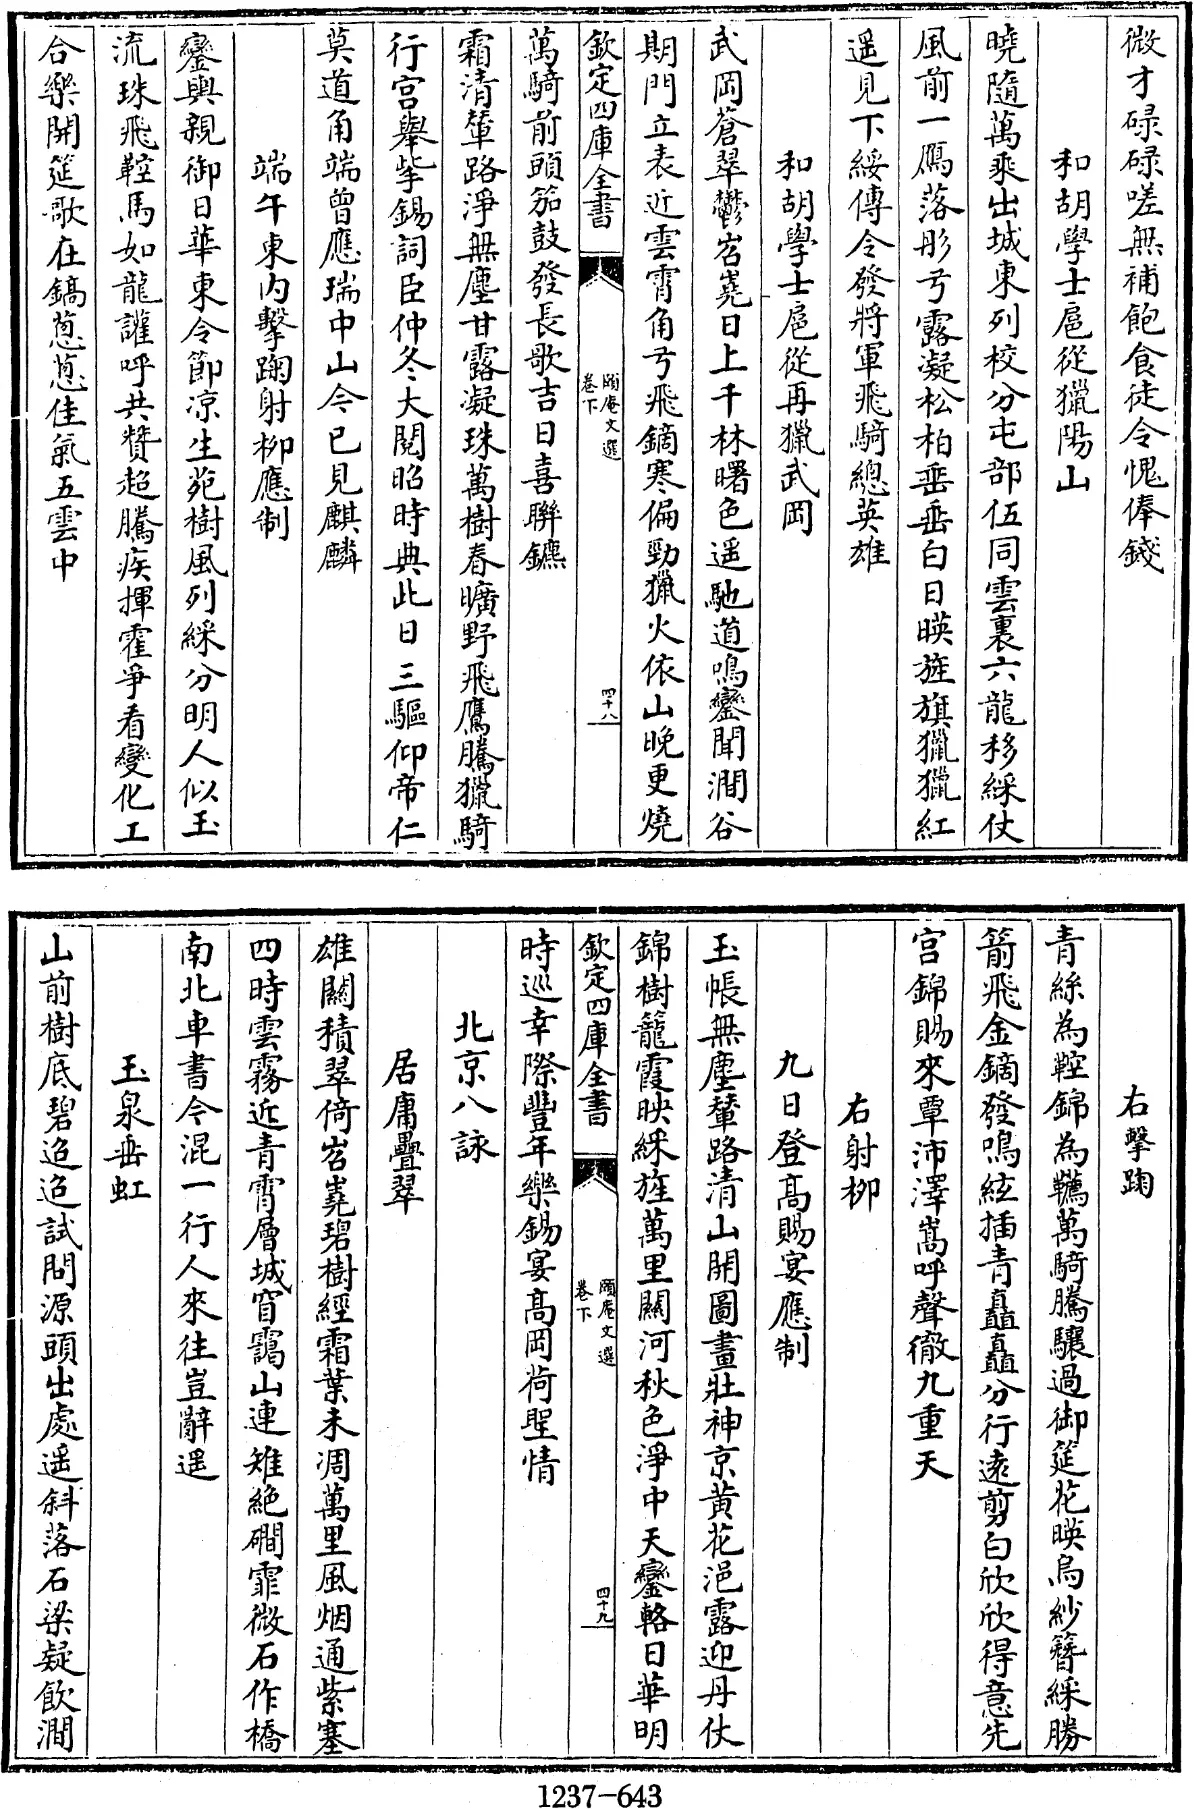 微才碌碌嗟無補飽食徒令愧俸錢
和胡學士扈從獵陽山
曉隨萬乘出城東列校分屯部伍同雲裏六龍移綵仗
風前一鴈落彤弓露凝松柏垂垂白日暎旌旗獵獵紅
遥見下綏傳令發將軍飛騎總英雄
和胡學士扈從再獵武岡
武岡蒼翠鬱岧嶤日上千林曙色遥馳道鳴鑾聞澗谷
期門立表近雲霄角弓飛鏑寒偏勁獵火依山晚更燒
欽定四庫全書
頤庵文選
卷下
四十八
萬騎前頭笳鼓發長歌吉日喜聯鑣
霜清輦路淨無塵甘露凝珠萬樹春曠野飛鷹騰獵騎
行宫舉㧘錫詞臣仲冬大閱昭時典此日三驅仰帝仁
莫道角端曾應瑞中山今已見麒麟
端午東内擊踘射柳應制
鑾輿親御日華東令節凉生苑樹風列綵分明人似玉
流珠飛鞚馬如龍讙呼共贊超騰疾揮霍爭看變化工
合樂開筵歌在鎬葱葱佳氣五雲中
右擊踘
青絲為鞚錦為韉萬騎騰驤過御筵花暎烏紗簪綵勝
箭飛金鏑發鳴絃插青矗矗分行遠剪白欣欣得意先
宫錦賜來覃沛澤嵩呼聲徹九重天
右射柳
九日登高賜宴應制
玉帳無塵輦路清山開圖畫壯神京黄花浥露迎丹仗
錦樹籠霞映綵旌萬里關河秋色淨中天鑾輅日華明
欽定四庫全書
頤庵文選
卷下
四十九
時巡幸際豐年樂錫宴高岡荷聖情
北京八詠
居庸疊翠
雄關積翠倚岧嶤碧樹經霜葉未凋萬里風烟通紫塞
四時雲霧近青霄層城窅靄山連雉絶磵霏微石作橋
南北車書今混一行人來往豈辭遥
玉泉垂虹
山前樹底碧迢迢試問源頭出處遥斜落石梁疑飲澗
1237-643